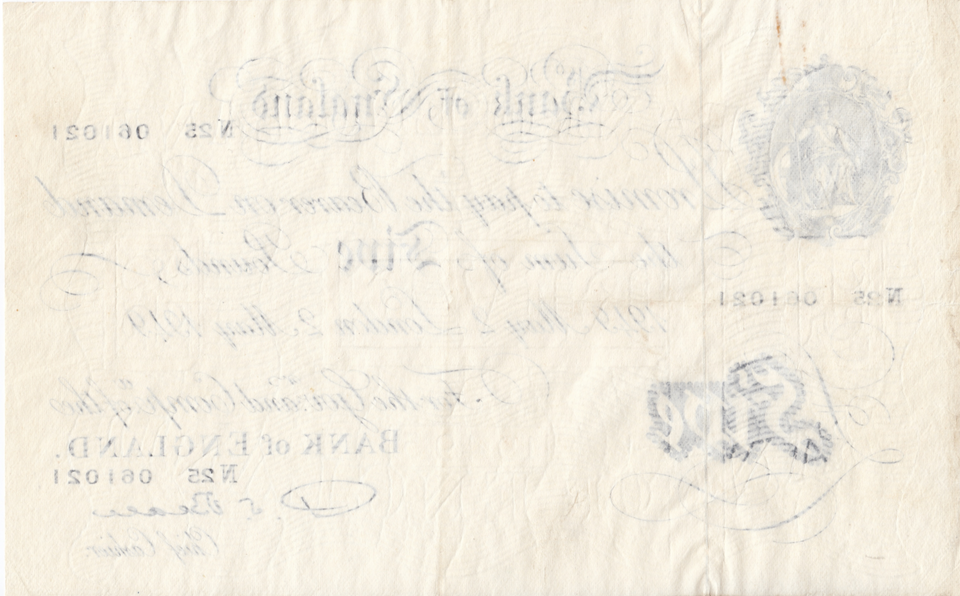 Bank of England
N25 061021
I Promise to pay the Bearer on Demand
the Sum of Five Pounds
N25 061021
1949 May 2 London 2 May 1949
For the Govr. and Compa. of the
BANK of ENGLAND.
N25 061021
Five
P S Beale
Chief Cashier.